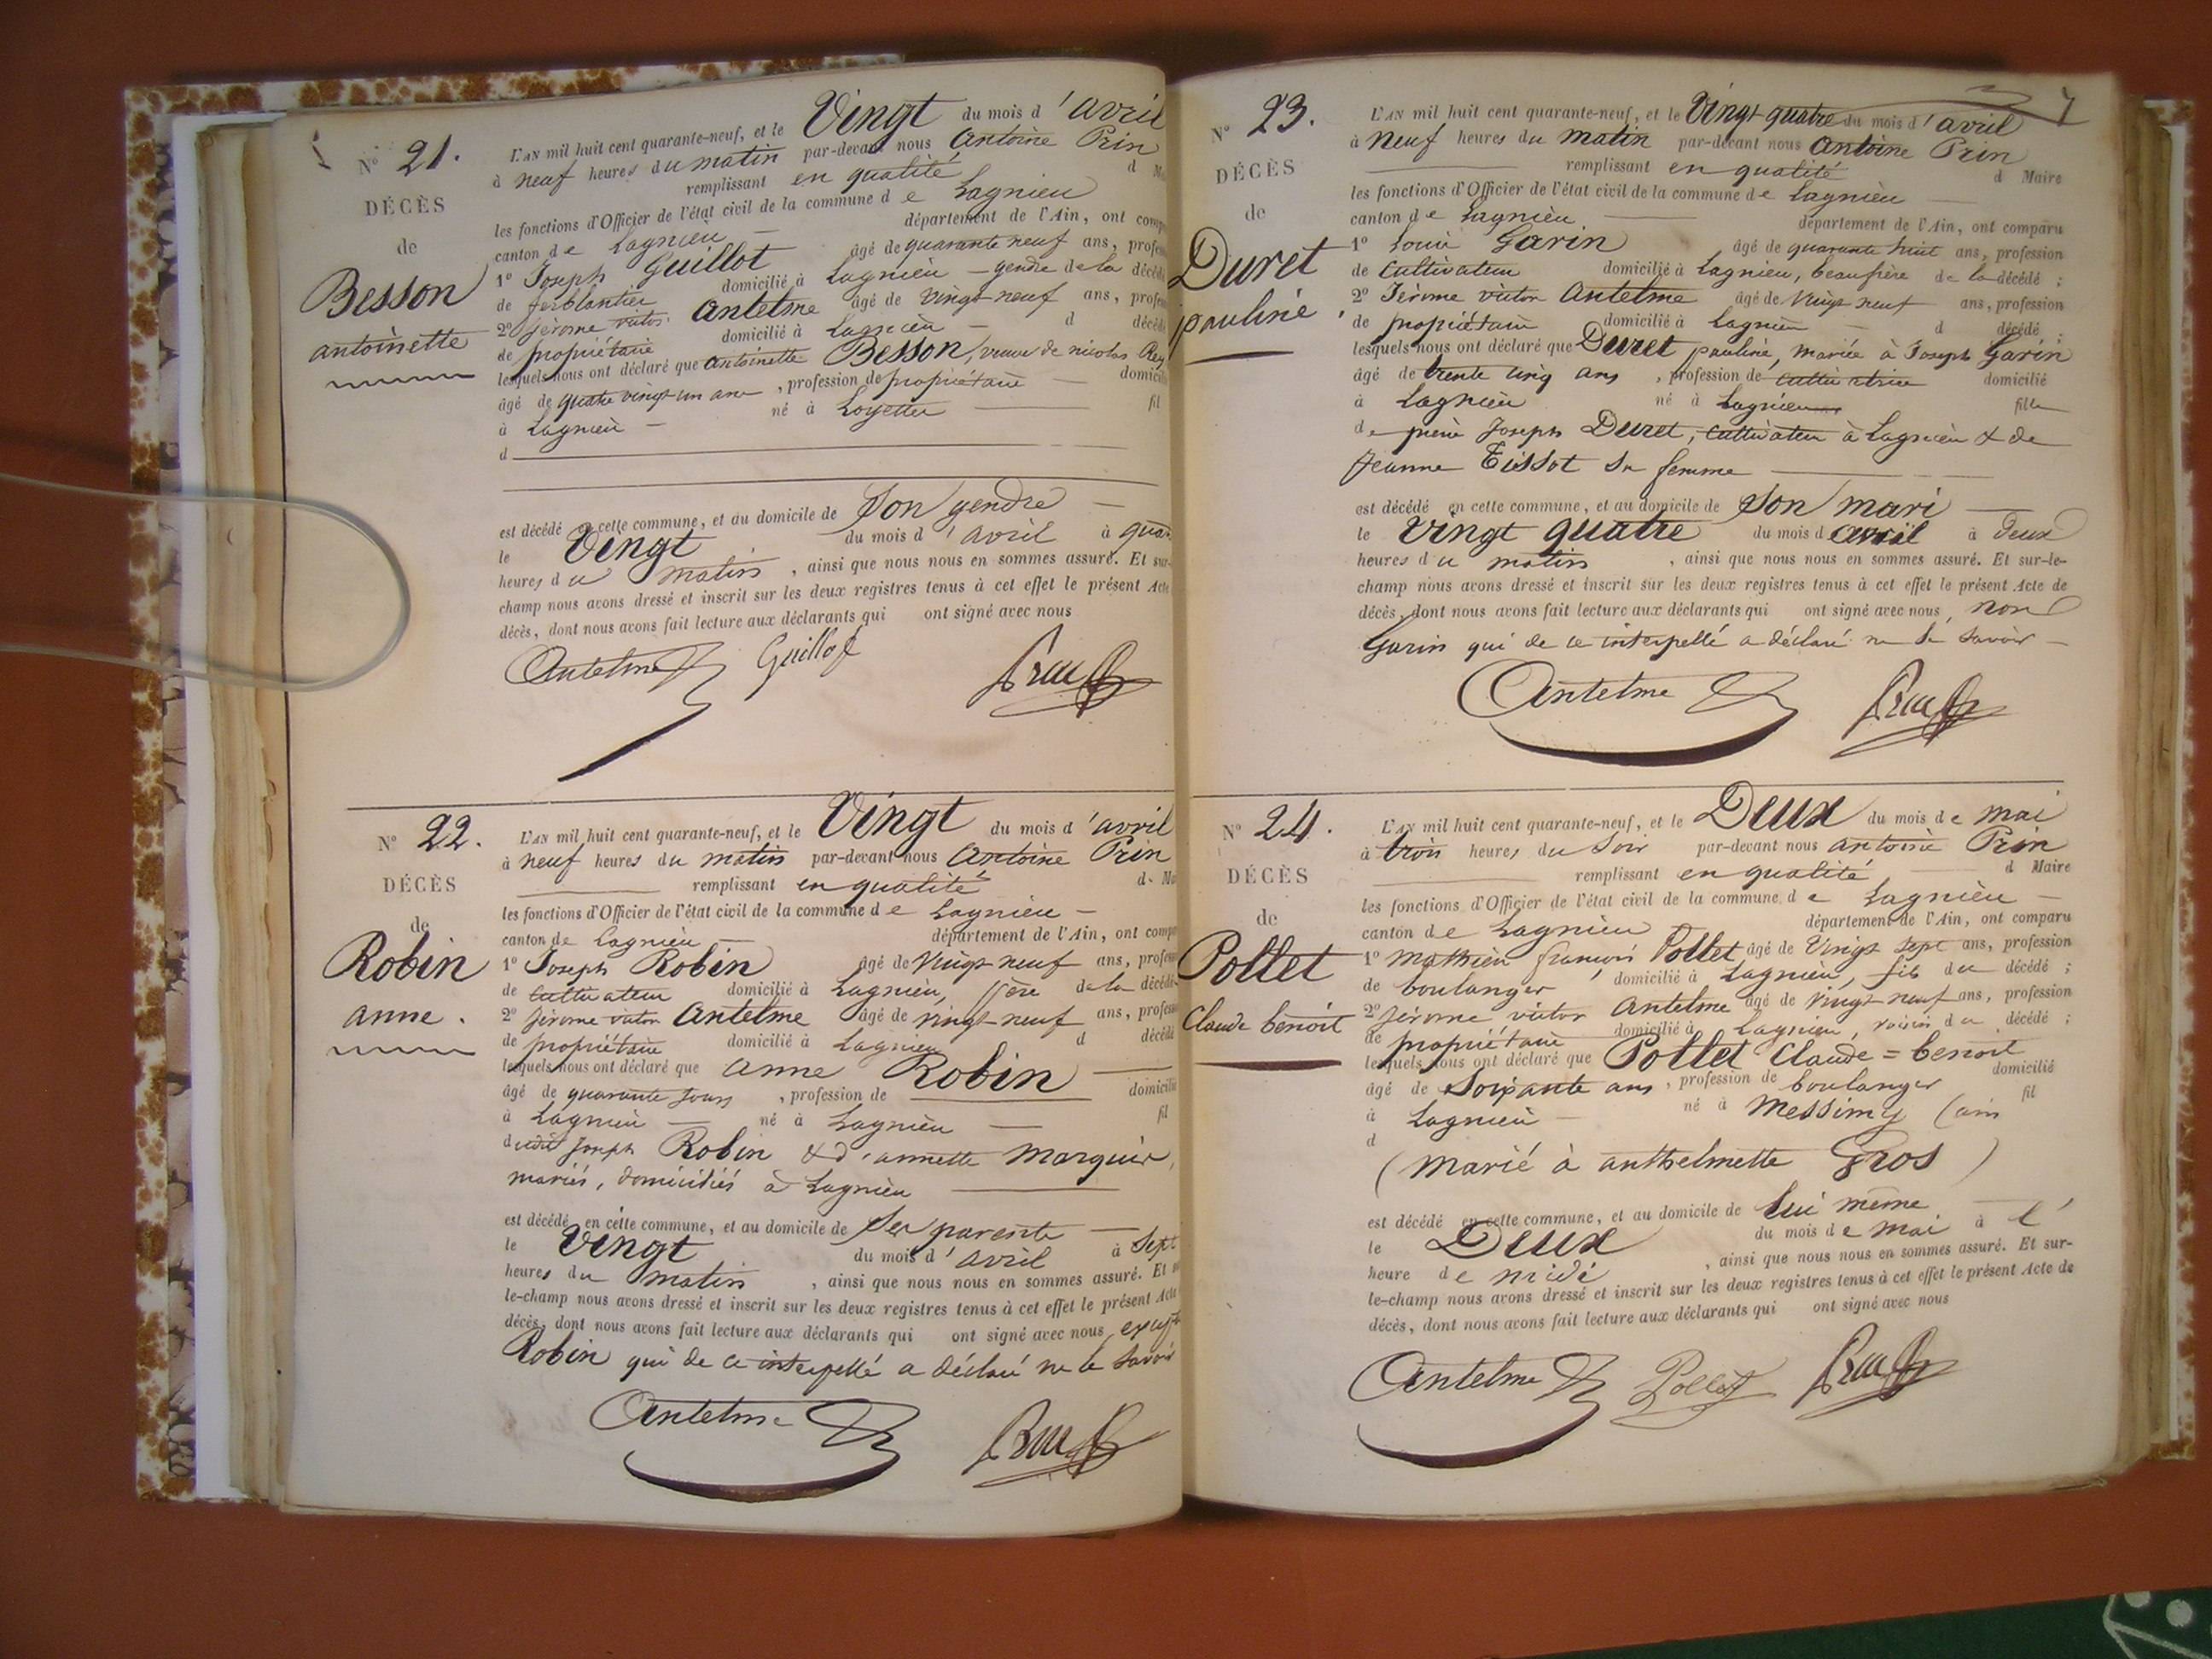 N° 21.
DÉCÈS
de
Besson
antoinette
L'AN mil huit cent quarante-neuf, et le Vingt du mois d'avril
à neuf heures du matin par-devant nous Antoine Prin
remplissant en qualité d
les fonctions d'Officier de l'état civil de la commune de Lagnieu
canton de Lagnieu département de l'Ain, ont
1° Joseph Guillot âgé de quarante neuf ans,
de ferblantier domicilié à Lagnieu - gendre de la
2° jérome victor Antelme âgé de vingt-neuf ans,
de propriétaire domicilié à Lagnieu d
lesquels nous ont déclaré que antoinette Besson, veuve de nicolas Rey
âgé de quatre vingt un ans, profession de propriétaire
à Lagnieu né à Loyettes fil
d
est décédé en cette commune, et au domicile de Son gendre
le Vingt du mois d'avril à
heures du matin, ainsi que nous nous en sommes assuré. Et
champ nous avons dressé et inscrit sur les deux registres tenus à cet effet le présent Acte
décès, dont nous avons fait lecture aux déclarants qui ont signé avec nous
Antelme Guillot Prin
N° 22.
DÉCÈS
de
Robin
anne.
L'AN mil huit cent quarante-neuf, et le Vingt du mois d'avril
à neuf heures du matin par-devant nous Antoine Prin
remplissant en qualité d
les fonctions d'Officier de l'état civil de la commune de Lagnieu
canton de Lagnieu département de l'Ain, ont
1° Joseph Robin âgé de vingt-neuf ans,
de cultivateur domicilié à Lagnieu, père de la
2° jérome victor Antelme âgé de vingt-neuf ans,
de propriétaire domicilié à Lagnieu d décédé
lesquels nous ont déclaré que anne Robin
âgé de quarante jours, profession de domicilié
à Lagnieu né à Lagnieu fil
dudit Joseph Robin & d'annette Marguin,
mariés, domiciliés à Lagnieu
est décédé en cette commune, et au domicile de Ses parents
le Vingt du mois d'avril à Sept
heures du matin, ainsi que nous nous en sommes assuré. Et
le-champ nous avons dressé et inscrit sur les deux registres tenus à cet effet le présent Acte
décès, dont nous avons fait lecture aux déclarants qui ont signé avec nous,
Robin qui de ce interpellé a déclaré ne le savoir
Antelme Prin
7
N° 23.
DÉCÈS
de
Duret
pauline.
L'AN mil huit cent quarante-neuf, et le Vingt-quatre du mois d'avril
à neuf heures du matin par-devant nous Antoine Prin
remplissant en qualité d Maire
les fonctions d'Officier de l'état civil de la commune de Lagnieu
canton de Lagnieu département de l'Ain, ont comparu
1° Louis Garin âgé de quarante huit ans, profession
de cultivateur domicilié à Lagnieu, beaufrère de la décédé ;
2° Jérome victor Antelme âgé de vingt neuf ans, profession
de propriétaire domicilié à Lagnieu d décédé ;
lesquels nous ont déclaré que Duret pauline, mariée à Joseph Garin
âgé de trente cinq ans, profession de cultivatrice domicilié
à Lagnieu né à Lagnieu fille
de pierre Joseph Duret, cultivateur à Lagnieu & de
Jeanne Tissot sa femme
est décédé en cette commune, et au domicile de Son mari
le vingt quatre du mois d avril à deux
heures du matin, ainsi que nous nous en sommes assuré. Et sur-le-
champ nous avons dressé et inscrit sur les deux registres tenus à cet effet le présent Acte de
décès, dont nous avons fait lecture aux déclarants qui ont signé avec nous, non
Garin qui de ce interpellé a déclaré ne le savoir
Antelme Prin
N° 24.
DÉCÈS
de
Pollet
Claude benoit
L'AN mil huit cent quarante-neuf, et le Deux du mois de mai
à trois heures du soir par-devant nous antoine Prin
remplissant en qualité d Maire
les fonctions d'Officier de l'état civil de la commune de Lagnieu
canton de Lagnieu département de l'Ain, ont comparu
1° Mathieu françois Pollet âgé de vingt sept ans, profession
de boulanger domicilié à Lagnieu, fils du décédé ;
2° Jérome victor Antelme âgé de vingt-neuf ans, profession
de propriétaire domicilié à Lagnieu, voisin du décédé ;
lesquels nous ont déclaré que Pollet Claude=benoit
âgé de Soixante ans, profession de boulanger domicilié
à Lagnieu né à Messimy (ain fil
d
(marié à anthelmette Gros)
est décédé en cette commune, et au domicile de lui même
le Deux du mois de mai à l'
heure de midi, ainsi que nous nous en sommes assuré. Et sur-
le-champ nous avons dressé et inscrit sur les deux registres tenus à cet effet le présent Acte de
décès, dont nous avons fait lecture aux déclarants qui ont signé avec nous
Antelme Pollet Prin